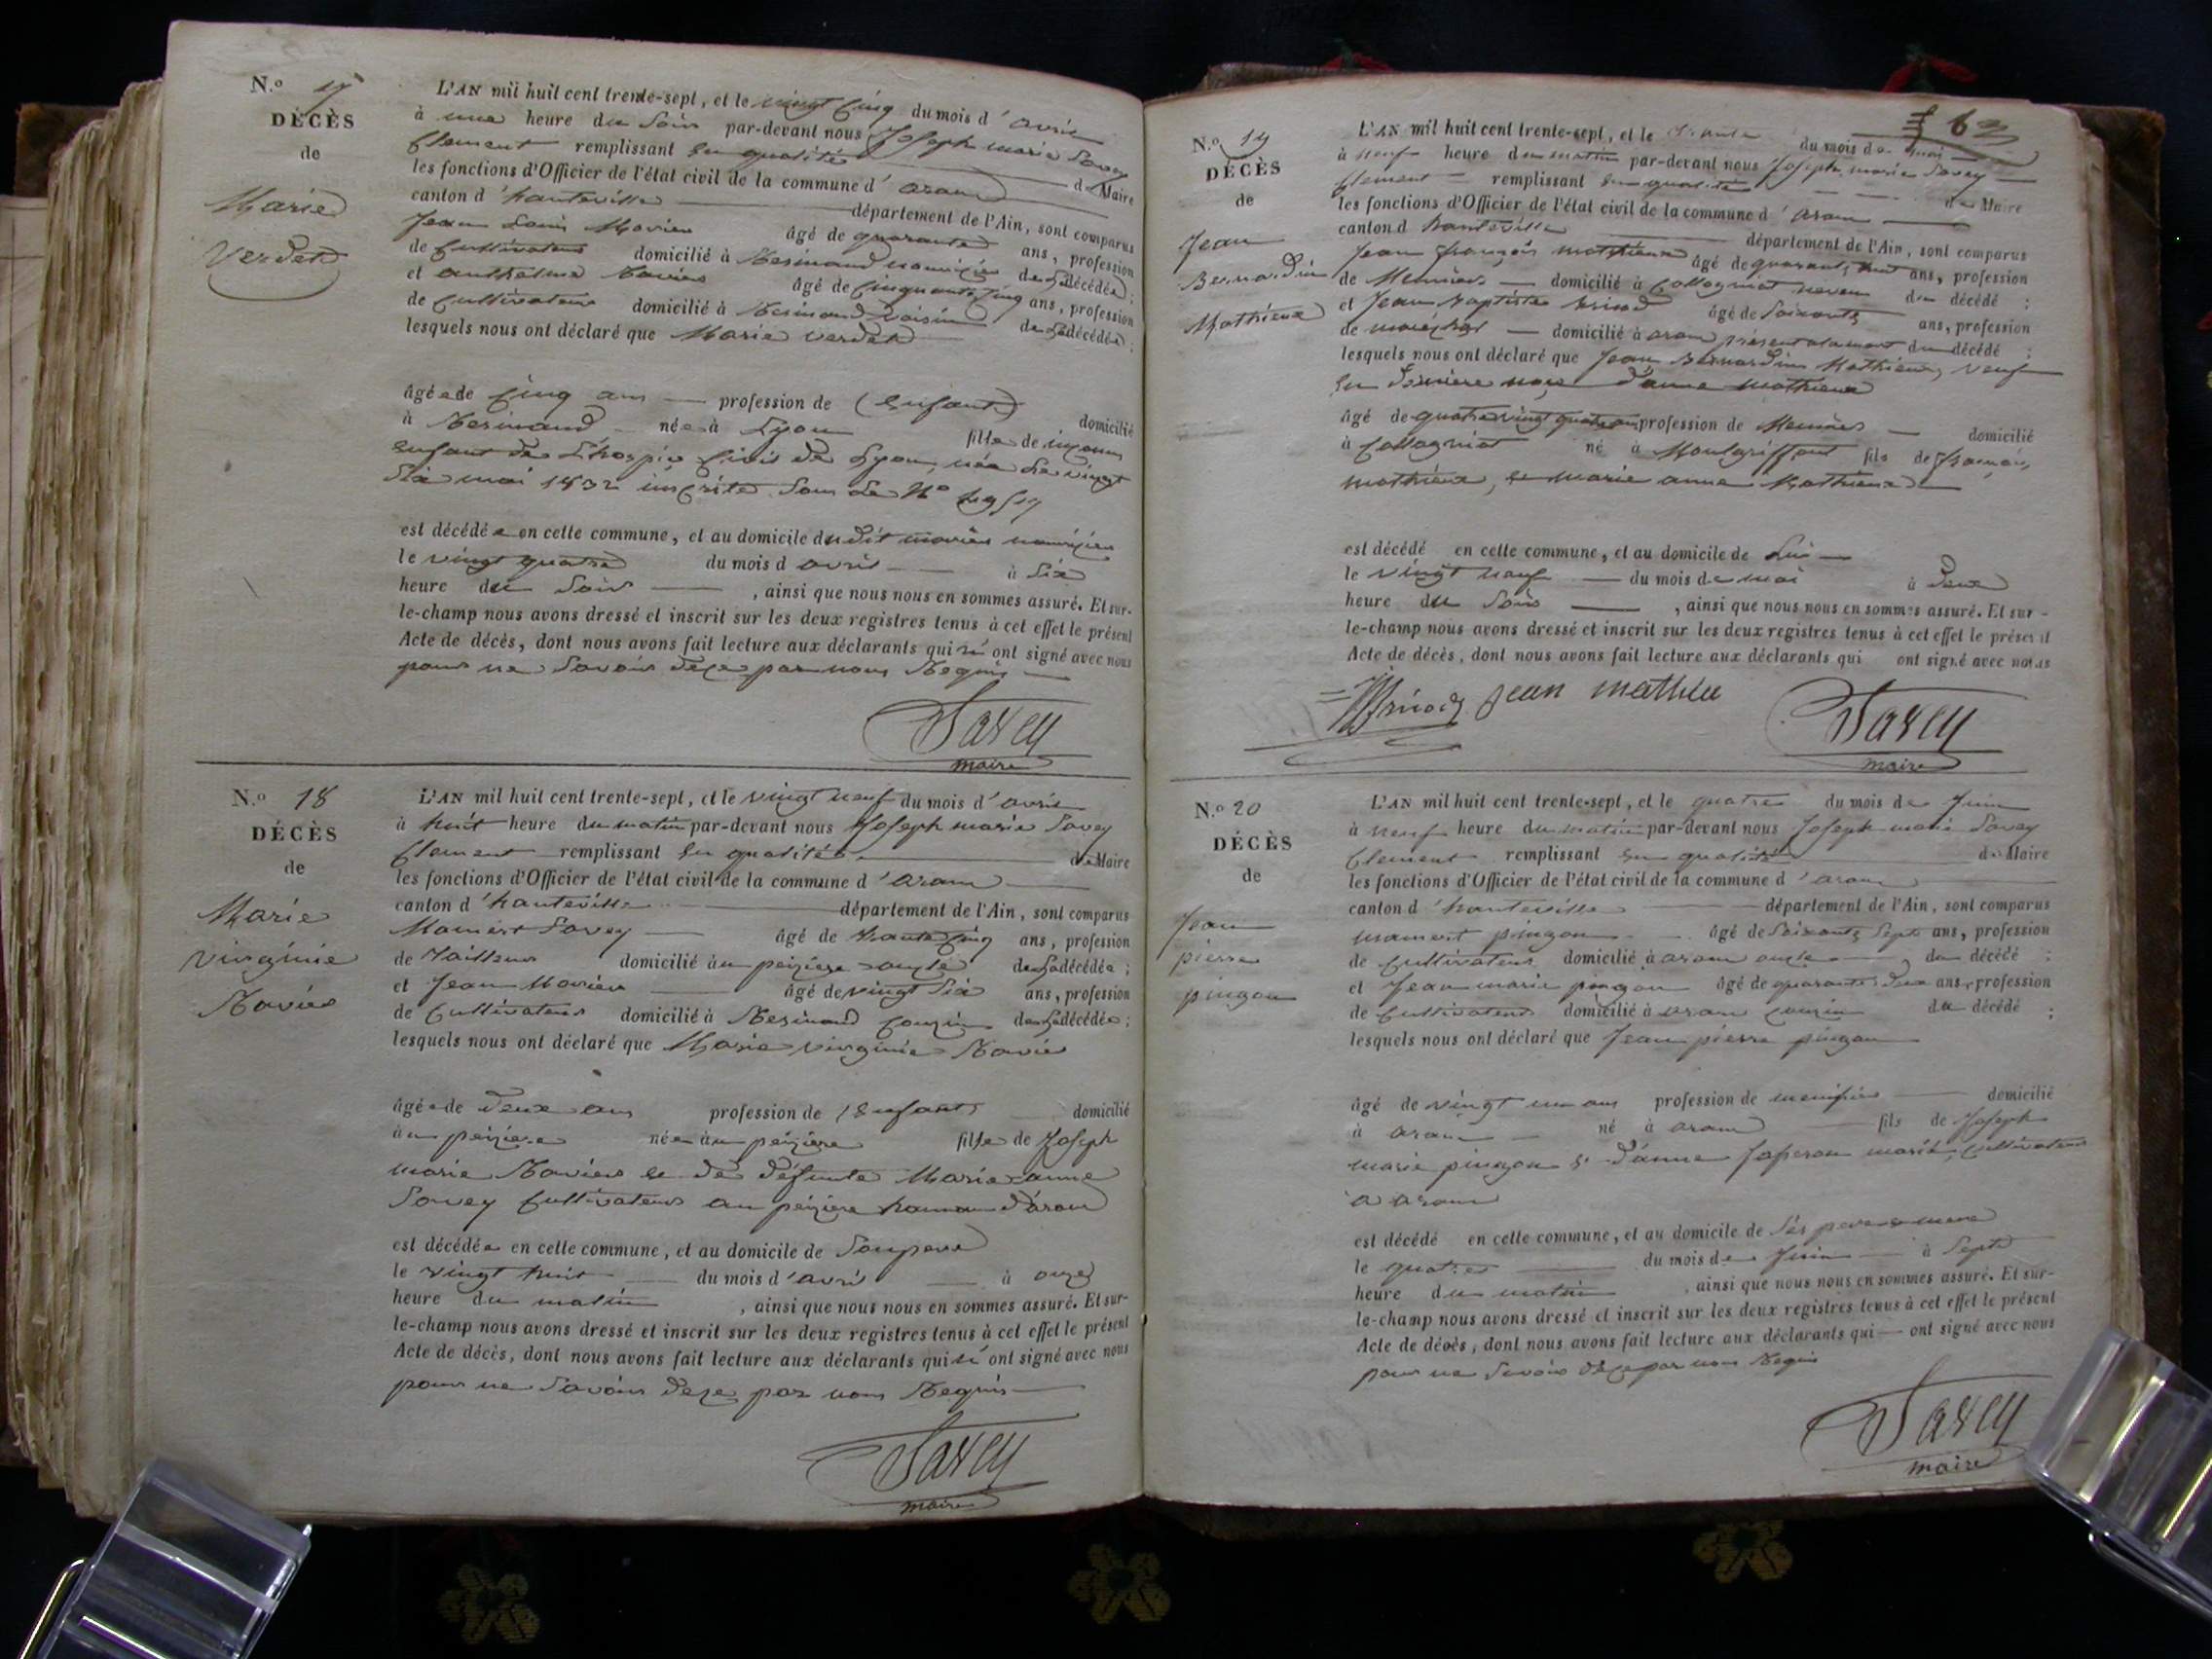 N.º 17
DÉCÈS
de
Marie
Verdet
L'AN mil huit cent trente-sept, et le vingt cinq du mois d'avril
à une heure du soir par-devant nous Joseph marie Savey
Clement remplissant en qualité de Maire
les fonctions d'Officier de l'état civil de la commune d'aran
canton d'hauteville département de l'Ain, sont comparus
Jean Louis âgé de quarante ans, profession
de Cultivateur domicilié à Resinand de la décédée ;
et anthelme âgé de Cinquante Cinq ans, profession
de Cultivateur domicilié à Resinand voisin de la décédée ;
lesquels nous ont déclaré que Marie Verdet
âgée de Cinq ans profession de (Enfant) domicilié
à Resinand née à Lyon fille de
Enfant de L'hospice Civil de Lyon, née Le vingt
Six mai 1832 inscrite Sous Le Nº
est décédée en cette commune, et au domicile dudit
le vingt quatre du mois d avril à Six
heure du Soir , ainsi que nous nous en sommes assuré. Et sur-
le-champ nous avons dressé et inscrit sur les deux registres tenus à cet effet le présent
Acte de décès, dont nous avons fait lecture aux déclarants qui n' ont signé avec nous
pour ne Savoir de ce par nous Requis
Savey
maire
N.º 18
DÉCÈS
de
Marie
virginie
Ravier
L'AN mil huit cent trente-sept, et le vingt neuf du mois d'avril
à huit heure du matin par-devant nous Joseph marie Savey
Clement remplissant en qualité de Maire
les fonctions d'Officier de l'état civil de la commune d'aran
canton d'hauteville département de l'Ain, sont comparus
Mamert Savey âgé de trente Cinq ans, profession
de Tailleur domicilié au peizière oncle de la décédée ;
et Jean Ravier âgé de vingt Six ans, profession
de Cultivateur domicilié à Resinand Couzin de la décédée ;
lesquels nous ont déclaré que Marie virginie Ravier
âgée de deux ans profession de (Enfant) domicilié
au peizière née au peizière fille de Joseph
marie Ravier et de défunte Marie anne
Savey Cultivateur au peizière hameau d'aran
est décédée en cette commune, et au domicile de Son pere
le vingt huit du mois d'avril à onze
heure du matin , ainsi que nous nous en sommes assuré. Et sur-
le-champ nous avons dressé et inscrit sur les deux registres tenus à cet effet le présent
Acte de décès, dont nous avons fait lecture aux déclarants qui n' ont signé avec nous
pour ne Savoir de ce par nous Requis
Savey
maire
N.º 19
DÉCÈS
de
Jean
Bernardin
Mathieux
L'AN mil huit cent trente-sept, et le trente du mois de mai
à neuf heure du matin par-devant nous Joseph marie Savey
Clement remplissant en qualité de Maire
les fonctions d'Officier de l'état civil de la commune d'aran
canton d hauteville département de l'Ain, sont comparus
Jean françois mathieux âgé de quarante huit ans, profession
de Meunier domicilié à Collogniat neveu du décédé ;
et Jean Baptiste Brinod âgé de Soixante ans, profession
de maréchal domicilié à aran du décédé ;
lesquels nous ont déclaré que Jean Bernardin Mathieux, veuf
en derniere noce d'anne mathieux
âgé de quatre vingt quatre ans profession de Meunier domicilié
à Collogniat né à Montgriffont fils de françois
mathieux, et marie anne Mathieux
est décédé en cette commune, et au domicile de Lui
le vingt neuf du mois de mai à deux
heure du Soir , ainsi que nous nous en sommes assuré. Et sur-
le-champ nous avons dressé et inscrit sur les deux registres tenus à cet effet le présent
Acte de décès, dont nous avons fait lecture aux déclarants qui ont signé avec nous
Brinod jean mathieu
Savey
maire
N.º 20
DÉCÈS
de
Jean
pierre
pingon
L'AN mil huit cent trente-sept, et le quatre du mois de Juin
à neuf heure du matin par-devant nous Joseph marie Savey
Clement remplissant en qualité de Maire
les fonctions d'Officier de l'état civil de la commune d'aran
canton d'hauteville département de l'Ain, sont comparus
mamert pingon âgé de Soixante Sept ans, profession
de Cultivateur domicilié à aran oncle du décédé ;
et Jean marie pingon âgé de quarante deux ans, profession
de Cultivateur domicilié à aran Couzin du décédé ;
lesquels nous ont déclaré que Jean pierre pingon
âgé de vingt un ans profession de domicilié
à aran né à aran fils de Joseph
marie pingon et d'anne Japeron marié, Cultivateur
à aran
est décédé en cette commune, et au domicile de Ses pere et mere
le quatre du mois de Juin à Sept
heure du matin , ainsi que nous nous en sommes assuré. Et sur-
le-champ nous avons dressé et inscrit sur les deux registres tenus à cet effet le présent
Acte de décès, dont nous avons fait lecture aux déclarants qui ont signé avec nous
pour ne Savoir de ce par nous Requis
Savey
maire